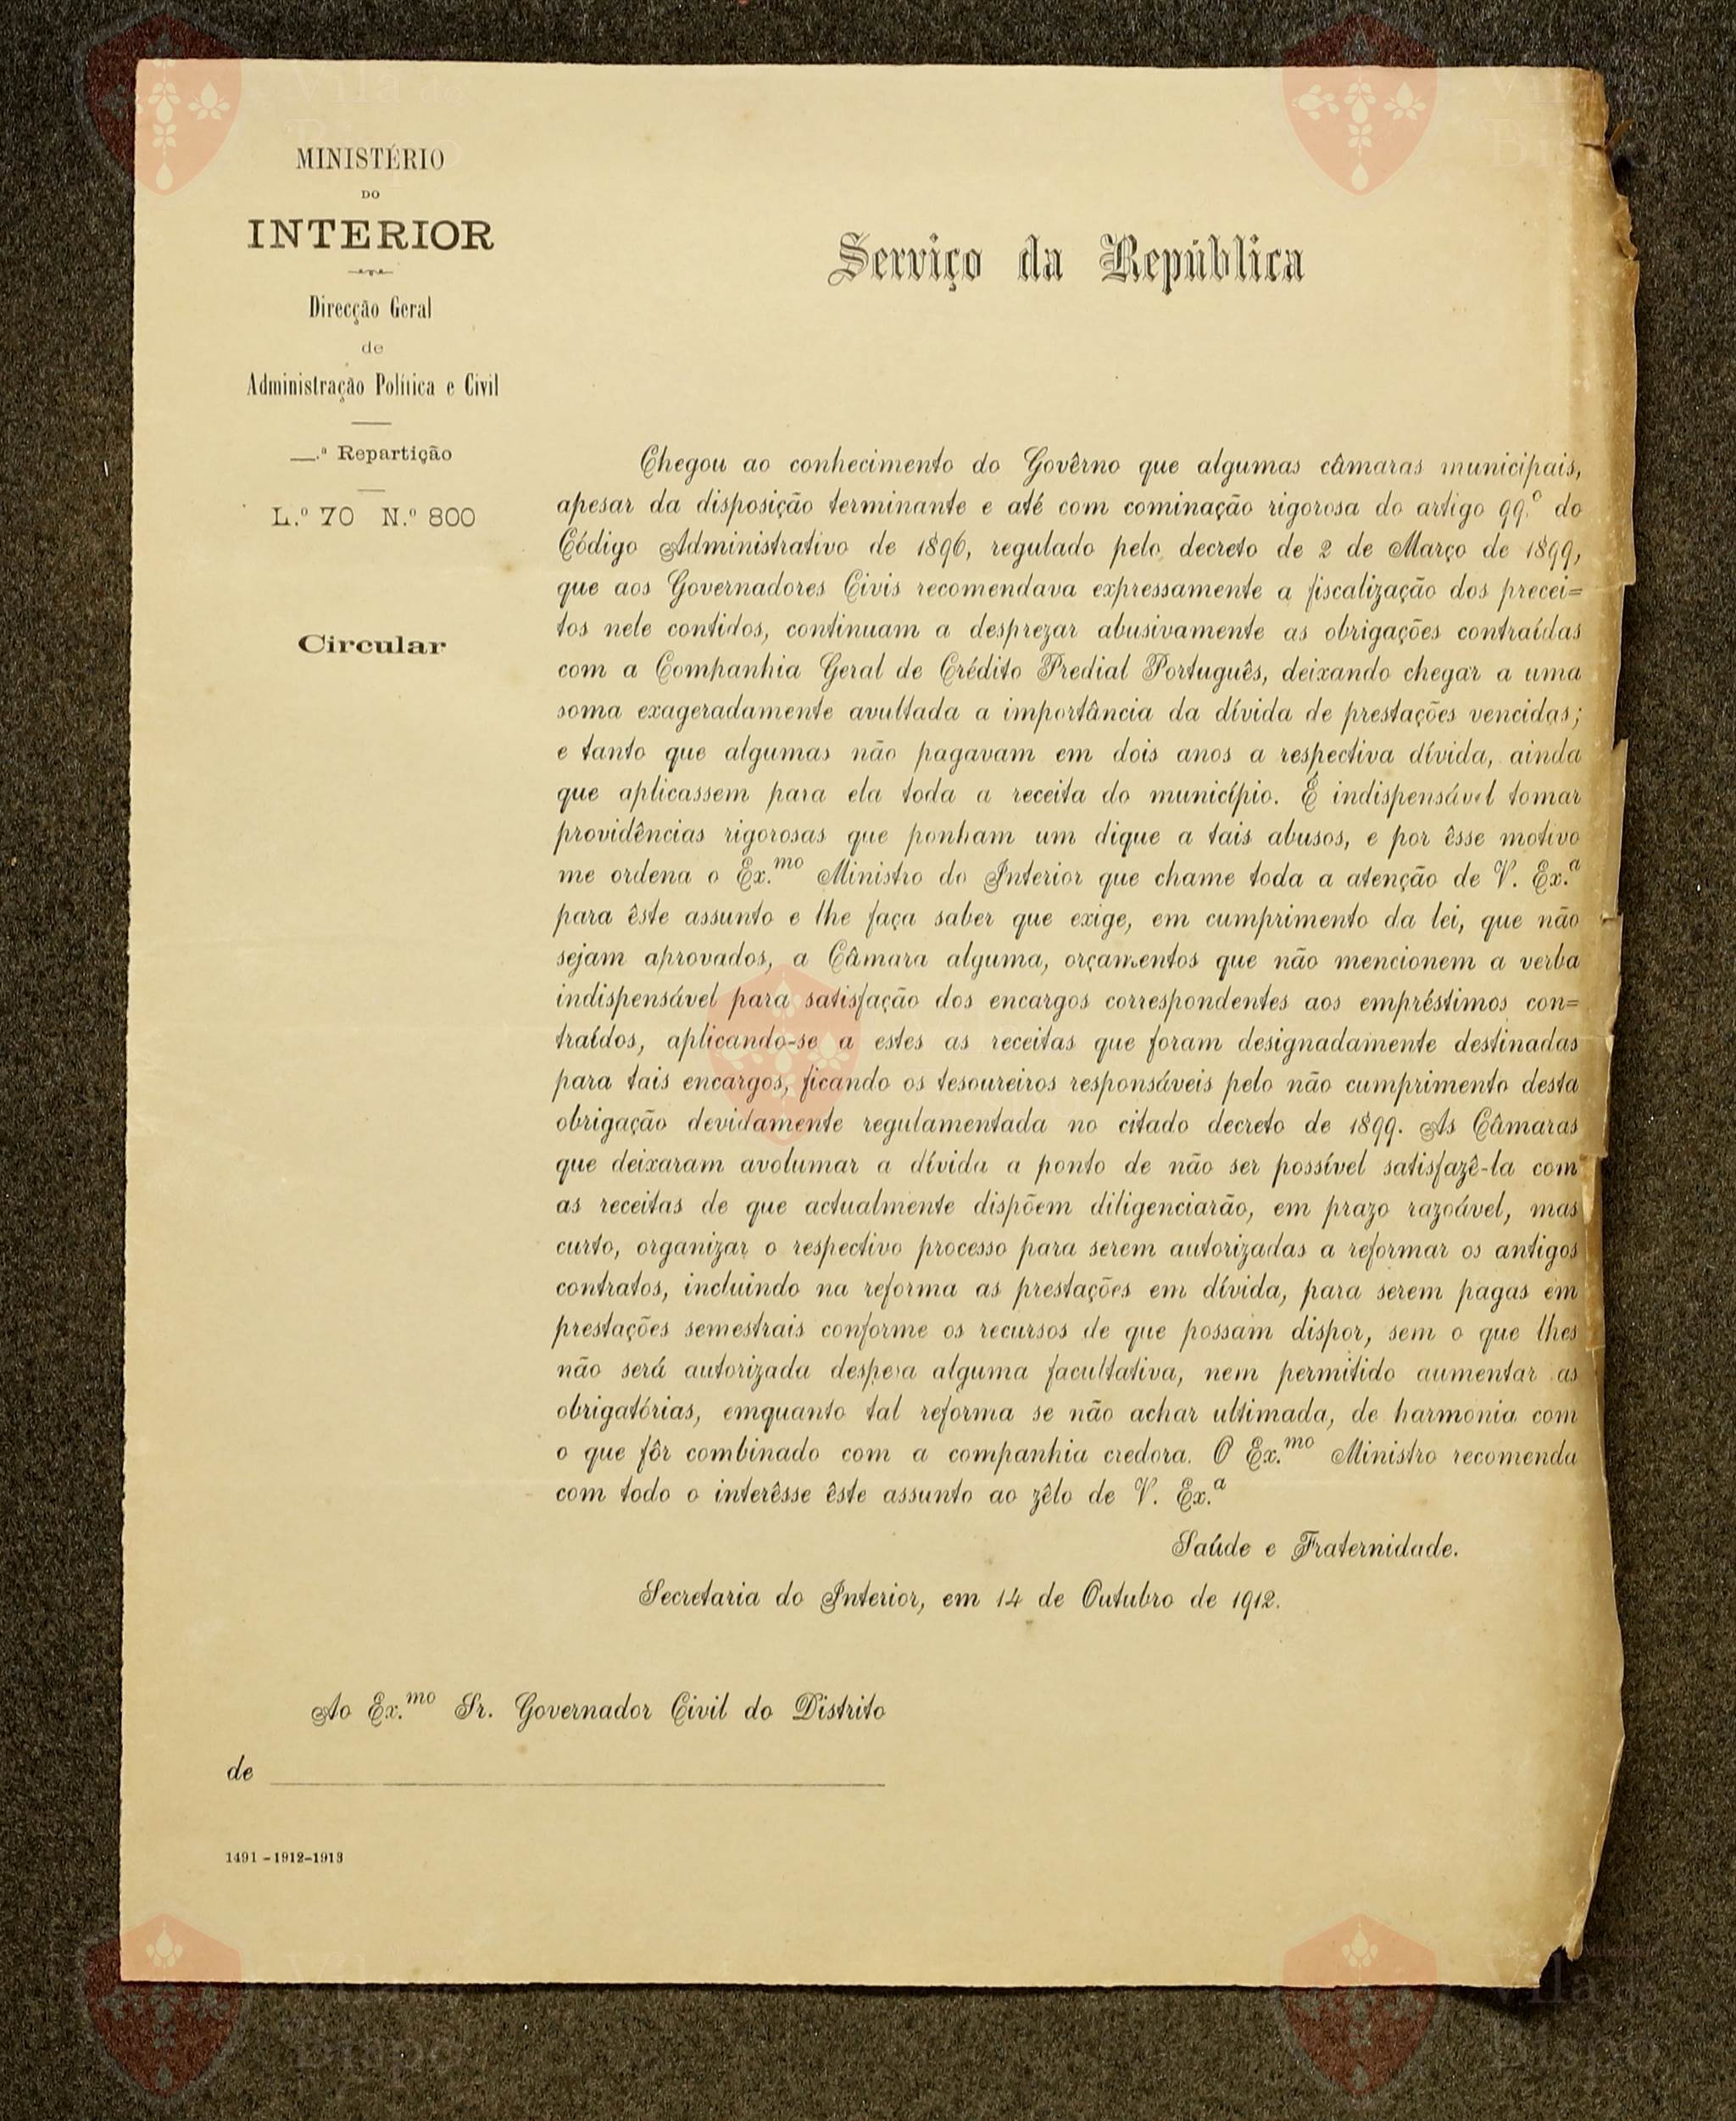 MINISTÉRIO
DO
INTERIOR
Direcção Geral
de
Administração Política e Civil
__.ª Repartição
L.º 70 N.º 800
Circular
Serviço da República
Chegou ao conhecimento do Govêrno que algumas câmaras municipais,
apesar da disposição terminante e até com cominação rigorosa do artigo 99.º do
Código Administrativo de 1896, regulado pelo decreto de 2 de Março de 1899,
que aos Governadores Civis recomendava expressamente a fiscalização dos precei=
tos nele contidos, continuam a desprezar abusivamente as obrigações contraídas
com a Companhia Geral de Crédito Predial Português, deixando chegar a uma
soma exageradamente avultada a importância da dívida de prestações vencidas;
e tanto que algumas não pagavam em dois anos a respectiva dívida, ainda
que aplicassem para ela toda a receita do município. É indispensável tomar
providências rigorosas que ponham um dique a tais abusos, e por êsse motivo
me ordena o Ex.mo Ministro do Interior que chame toda a atenção de V. Ex.ª
para êste assunto e lhe faça saber que exige, em cumprimento da lei, que não
sejam aprovados, a Câmara alguma, orçamentos que não mencionem a verba
indispensável para satisfação dos encargos correspondentes aos empréstimos con=
traídos, aplicando-se a estes as receitas que foram designadamente destinadas
para tais encargos, ficando os tesoureiros responsáveis pelo não cumprimento desta
obrigação devidamente regulamentada no citado decreto de 1899. As Câmaras
que deixaram avolumar a dívida a ponto de não ser possível satisfazê-la com
as receitas de que actualmente dispõem diligenciarão, em prazo razoável, mas
curto, organizar o respectivo processo para serem autorizadas a reformar os antigos
contratos, incluindo na reforma as prestações em dívida, para serem pagas em
prestações semestrais conforme os recursos de que possam dispor, sem o que lhes
não será autorizada despesa alguma facultativa, nem permitido aumentar as
obrigatórias, emquanto tal reforma se não achar ultimada, de harmonia com
o que fôr combinado com a companhia credora. O Ex.mo Ministro recomenda
com todo o interêsse êste assunto ao zêlo de V. Ex.ª
Saúde e Fraternidade.
Secretaria do Interior, em 14 de Outubro de 1912.
Ao Ex.mo Sr. Governador Civil do Distrito
de
1491-1912-1913
Vila do
Bispo
Vila do
Bispo
Vila do
Bispo
Vila do
Bispo